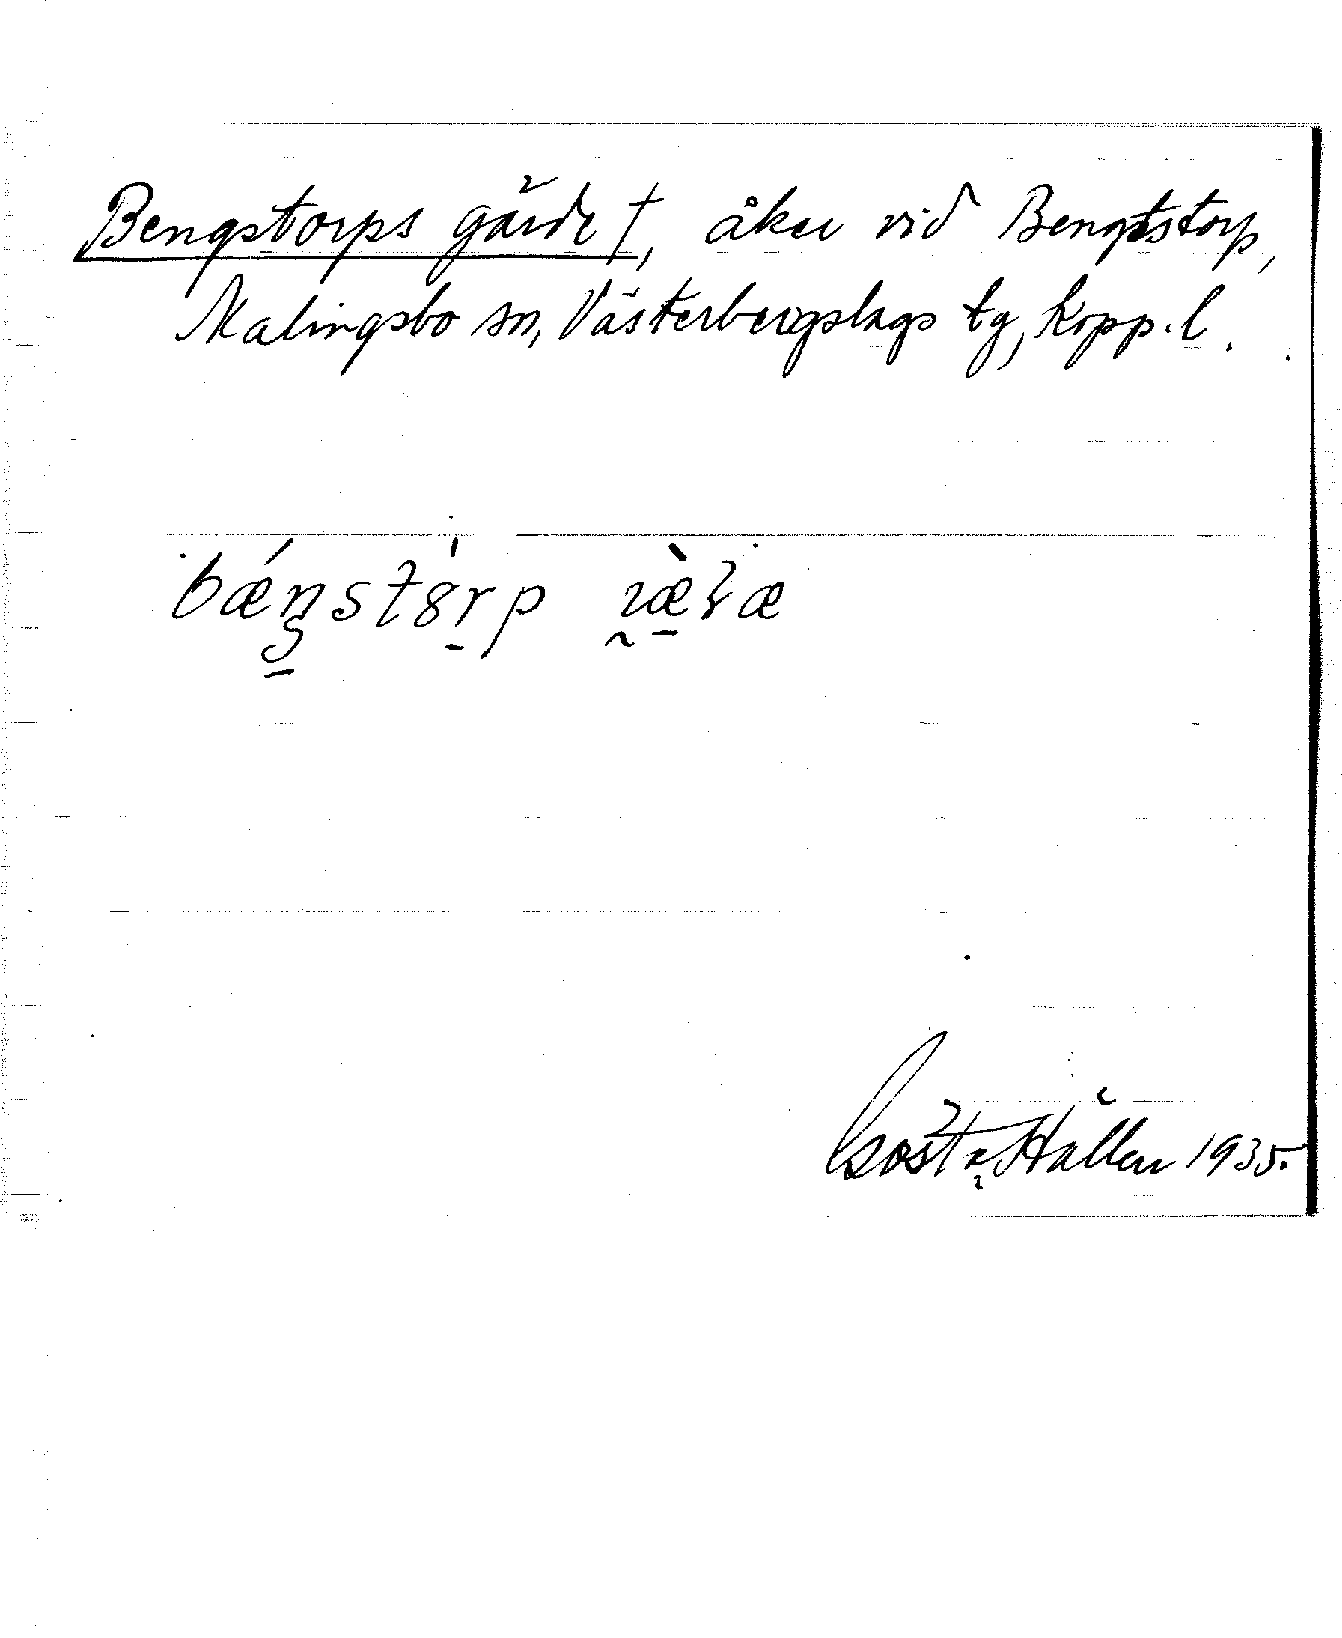 Bengstorps gärde †, åker vid Bengtstorp,
Malingsbo sn, Västerbergslags tg, Kopp. l.
Gösta Hallen 1935.